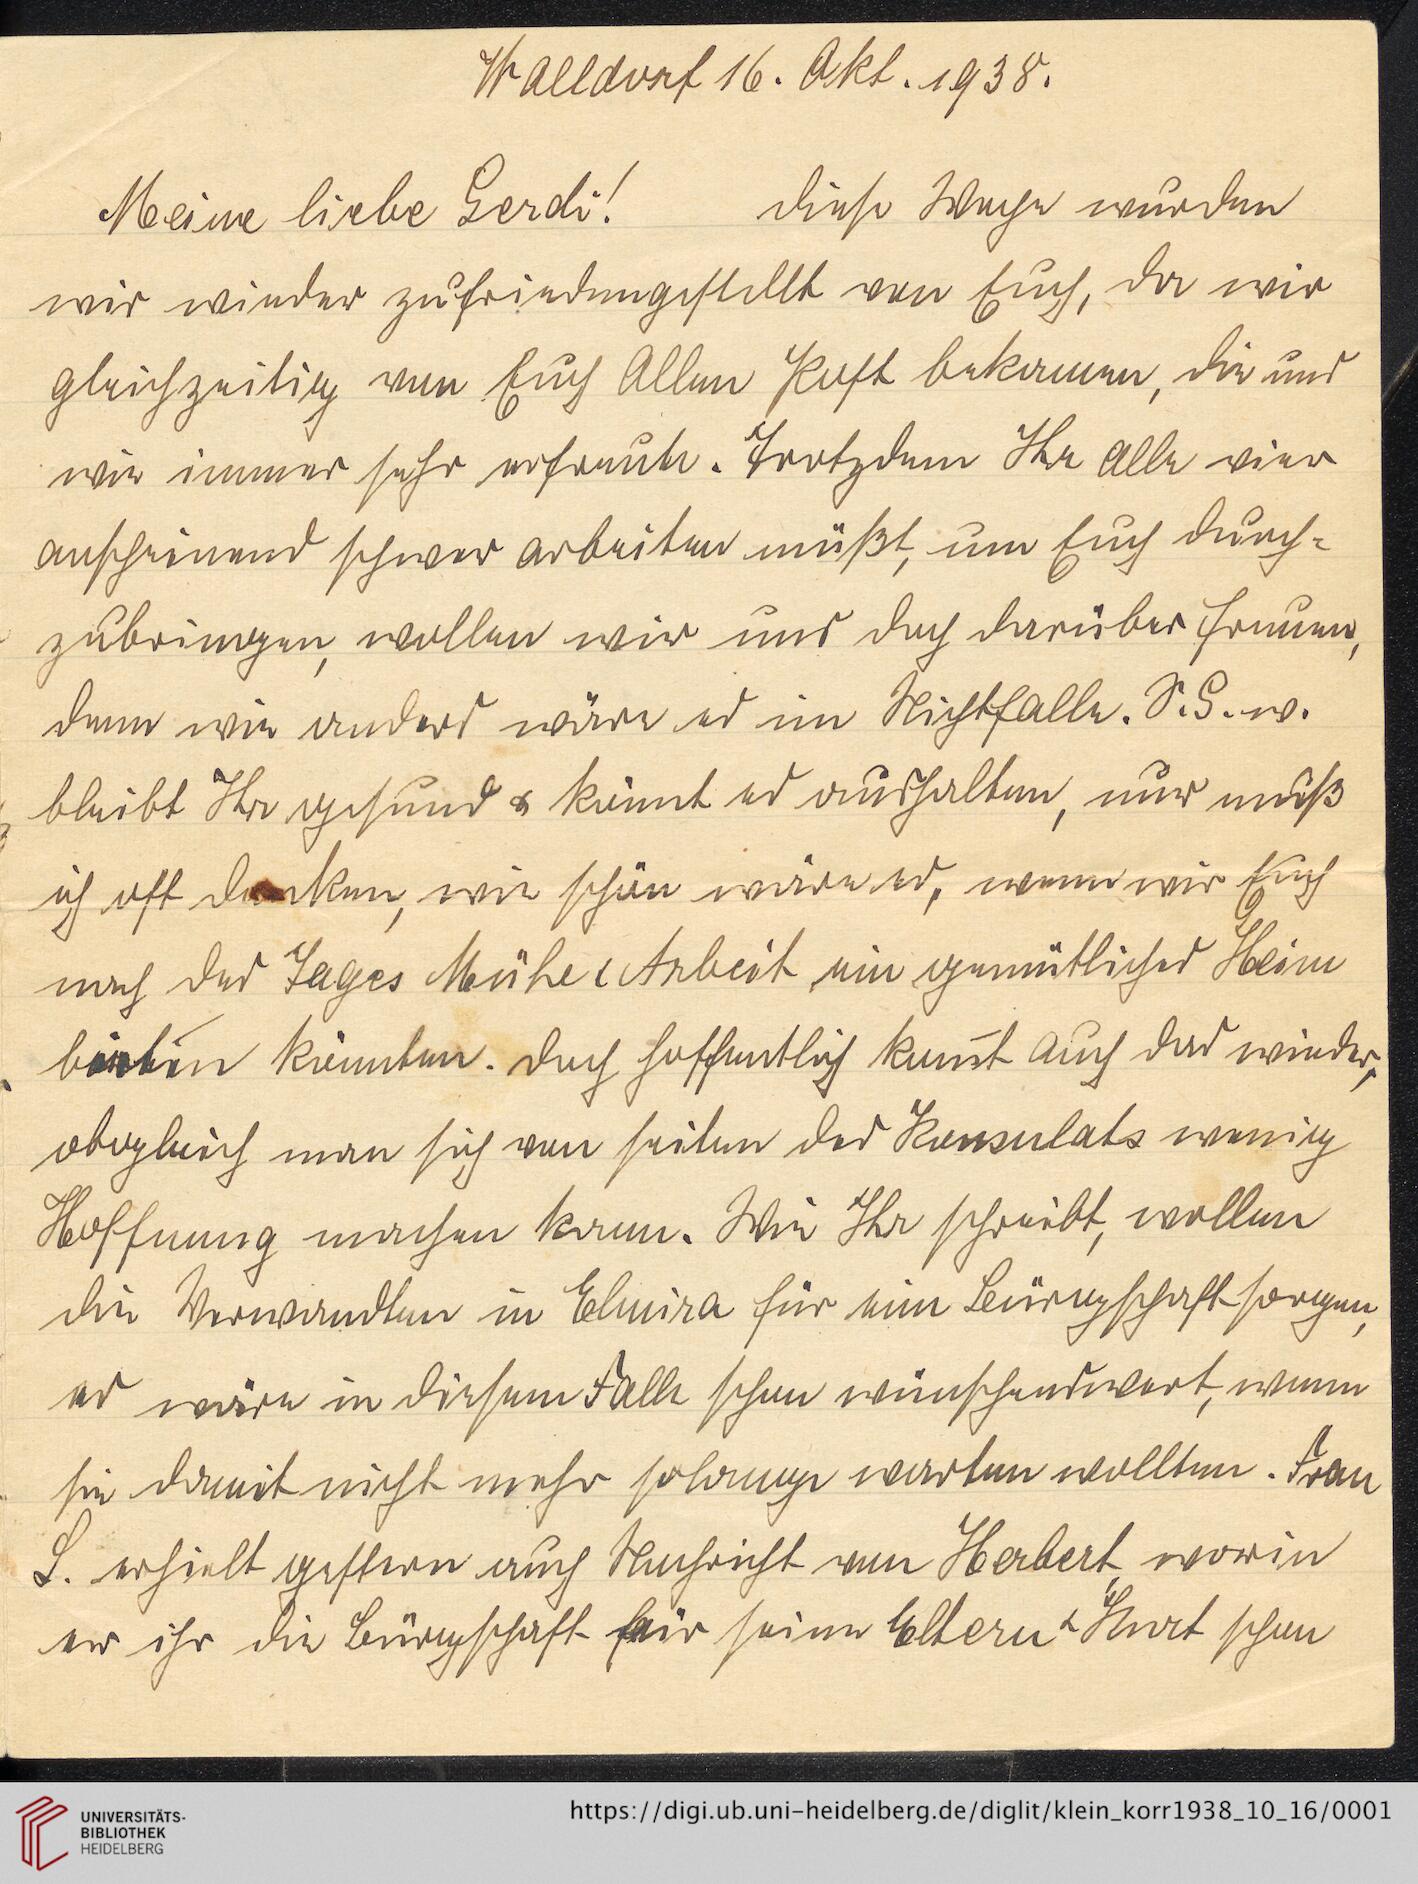 Walldorf 16. Okt. 1938.
Meine liebe Gerdi! Diese Woche wurden
wir wieder zufriedengestellt von Euch, da wir
gleichzeitig von Euch Allen Post bekamen, die uns
wie immer sehr erfreute. Trotzdem Ihr alle vier
anscheinend schwer arbeiten müßt, um Euch durch-
zubringen, wollen wir uns doch darüber freuen,
denn wie anders wäre es im Nichtfalle. S. G. w.
bleibt Ihr gesund & könnt es aushalten, nur muß
ich oft denken, wie schön wäre es, wenn wir Euch
nach des Tages Mühe & Arbeit ein gemütliches Heim
bieten könnten. Doch hoffentlich kommt auch das wieder,
obgleich man sich von seiten des Konsulats wenig
Hoffnung machen kann. Wie Ihr schreibt, wollen
die Verwandten in Elmira für eine Bürgschaft sorgen,
es wäre in diesem Falle schon wünschenswert, wenn
sie damit nicht mehr solange warten wollten. Frau
L. erhielt gestern auch Nachricht von Herbert, worin
er ihr die Bürgschaft für seine Eltern & Kurt schon
UNIVERSITÄTS-
BIBLIOTHEK
HEIDELBERG
https://digi.ub.uni-heidelberg.de/diglit/klein_korr1938_10_16/0001